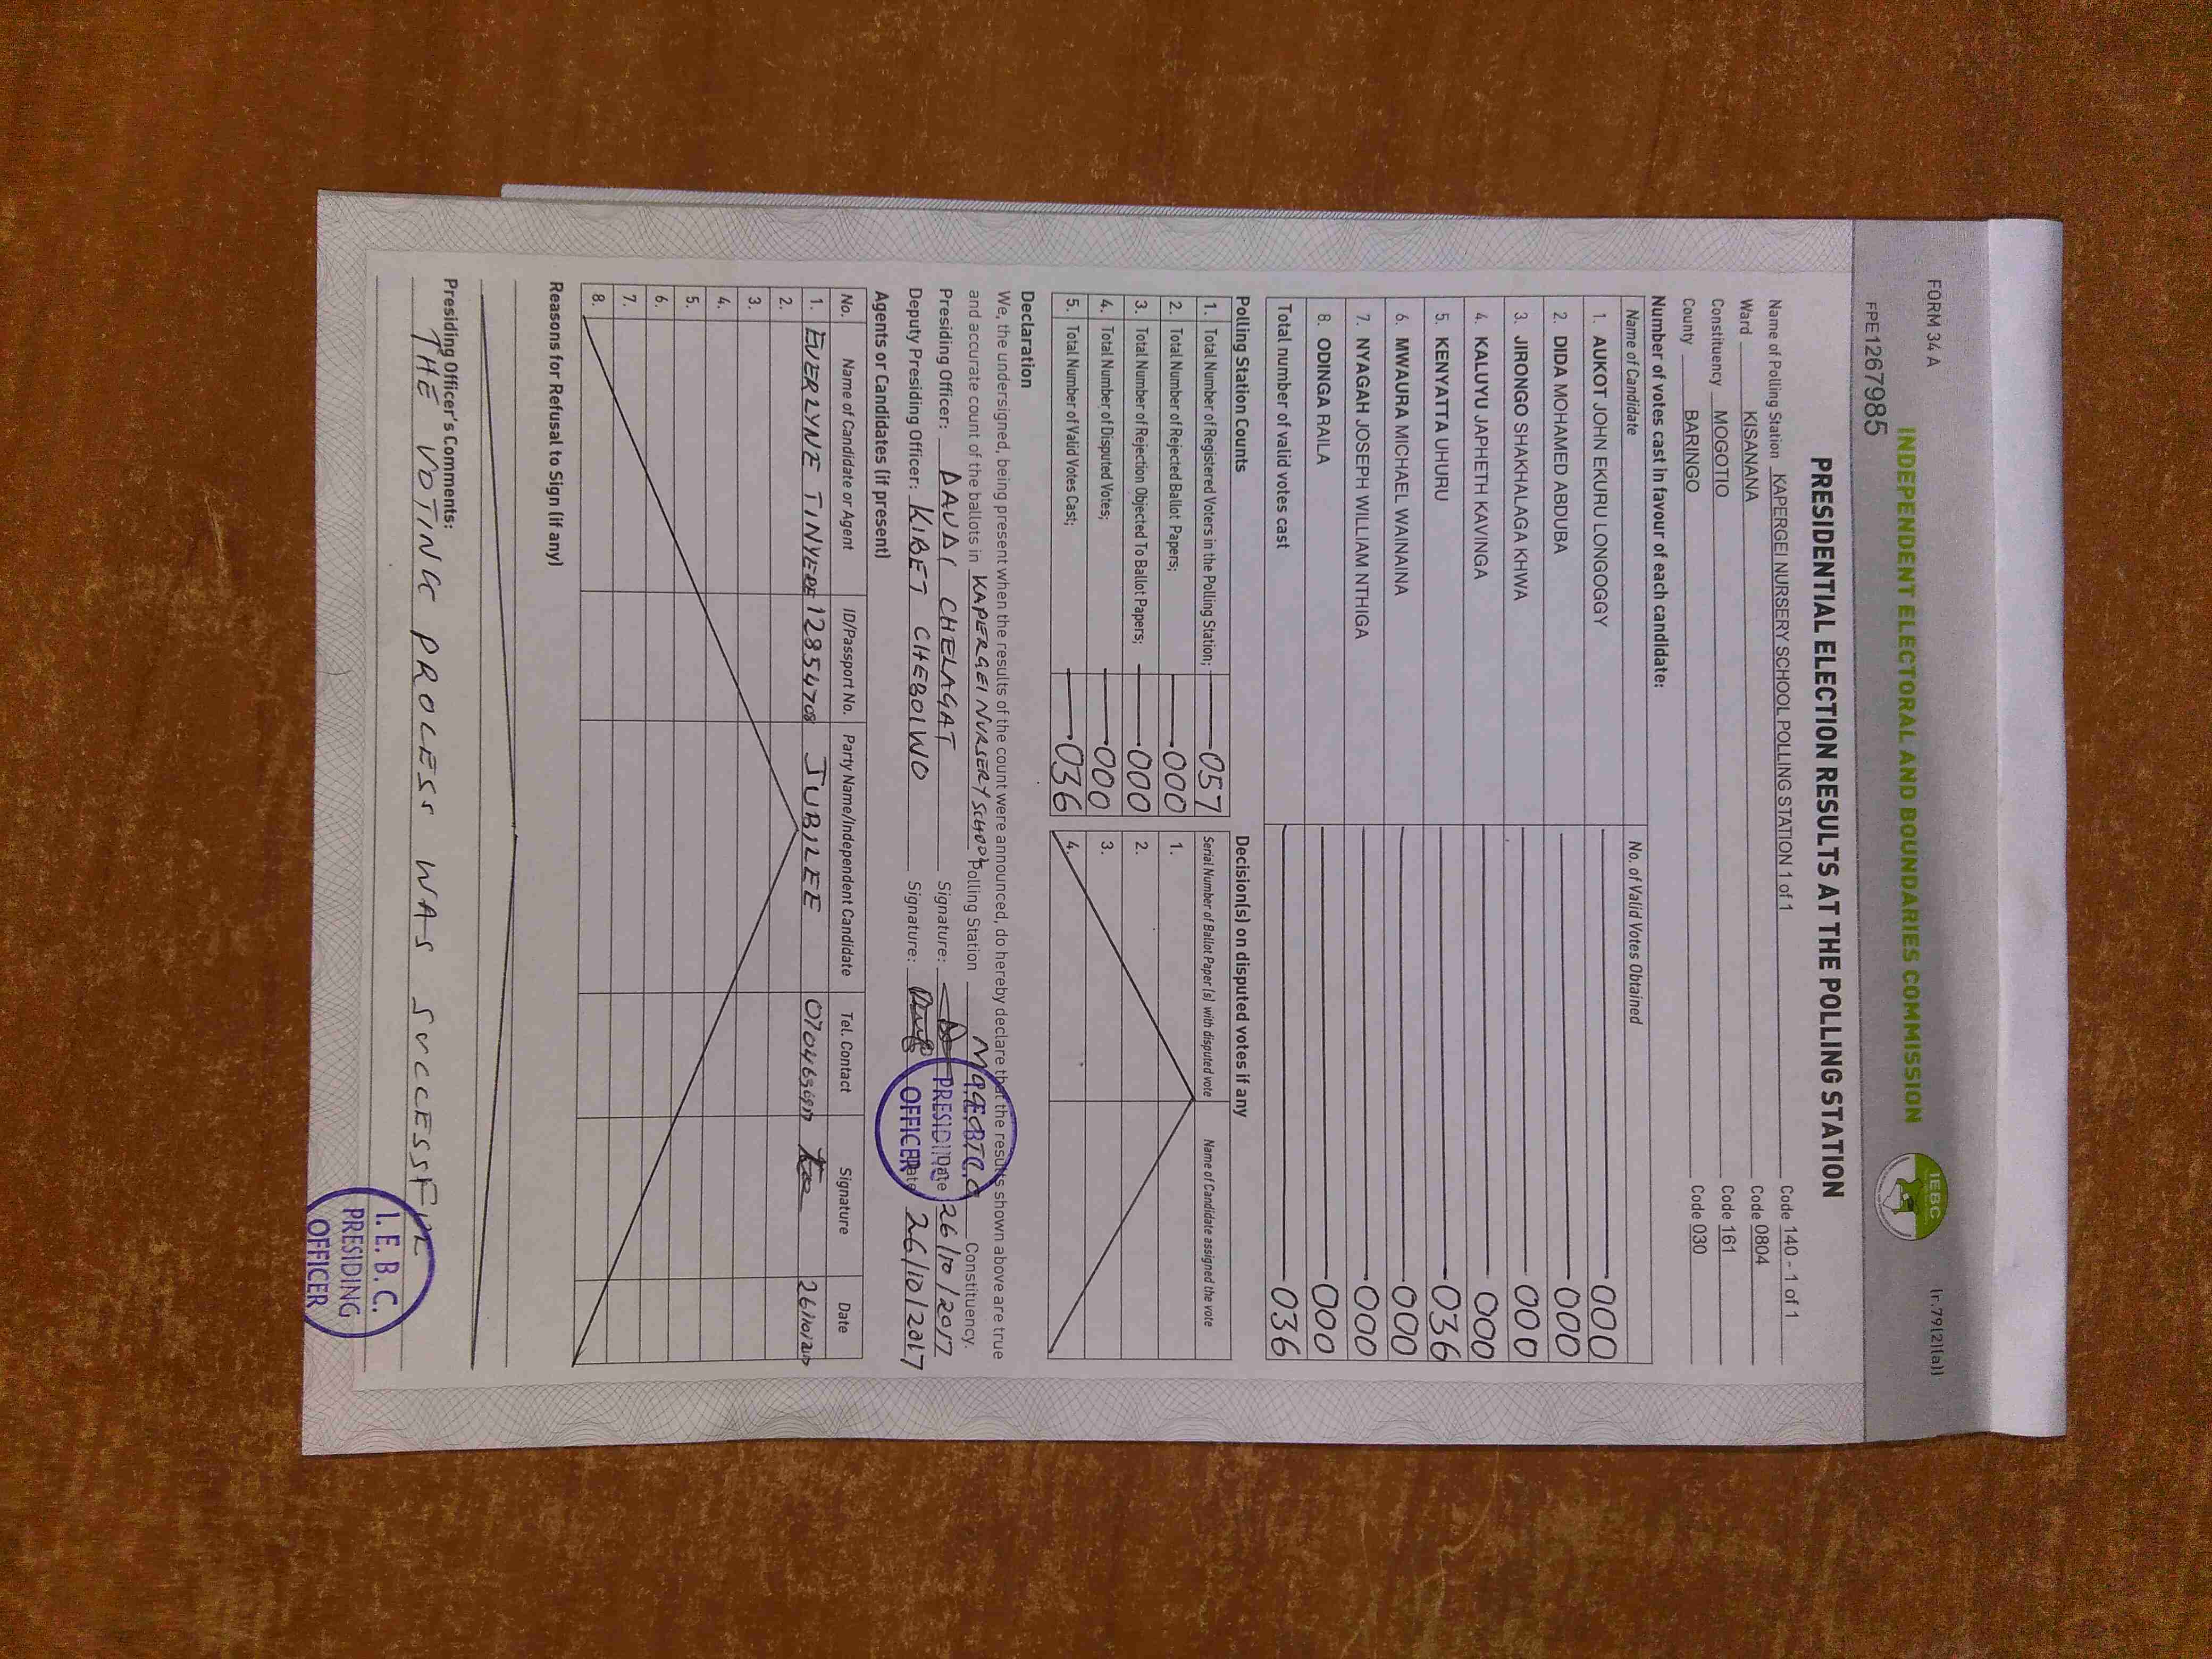 FORM 34 A
(r.79(2)(a))
INDEPENDENT ELECTORAL AND BOUNDARIES COMMISSION
IEBC
FPE1267985
PRESIDENTIAL ELECTION RESULTS AT THE POLLING STATION
Name of Polling Station KAPERGEI NURSERY SCHOOL POLLING STATION 1 of 1 Code 140 - 1 of 1
Ward KISANANA Code 0804
Constituency MOGOTIO Code 161
County BARINGO Code 030
Number of votes cast in favour of each candidate:
Name of Candidate No. of Valid Votes Obtained
1. AUKOT JOHN EKURU LONGOGGY 000
2. DIDA MOHAMED ABDUBA 000
3. JIRONGO SHAKHALAGA KHWA 000
4. KALUYU JAPHETH KAVINGA 000
5. KENYATTA UHURU 036
6. MWAURA MICHAEL WAINAINA 000
7. NYAGAH JOSEPH WILLIAM NTHIGA 000
8. ODINGA RAILA 000
Total number of valid votes cast 036
Polling Station Counts
1. Total Number of Registered Voters in the Polling Station; 057
2. Total Number of Rejected Ballot Papers; 000
3. Total Number of Rejection Objected To Ballot Papers; 000
4. Total Number of Disputed Votes; 000
5. Total Number of Valid Votes Cast; 036
Decision(s) on disputed votes if any
Serial Number of Ballot Paper(s) with disputed vote Name of Candidate assigned the vote
1.
2.
3.
4.
Declaration
We, the undersigned, being present when the results of the count were announced, do hereby declare that the results shown above are true
and accurate count of the ballots in KAPERGEI NURSERY SCHOOL Polling Station Constituency.
Presiding Officer: DAUDI CHELAGAT Signature: Date 26/10/2017
Deputy Presiding Officer: KIBET CHEBOIWO Signature: Date 26/10/2017
PRESIDING
OFFICER
Agents or Candidates (if present)
No. Name of Candidate or Agent ID/Passport No. Party Name/Independent Candidate Tel. Contact Signature Date
1. EVERLYNE 12854708 JUBILEE
2.
3.
4.
5.
6.
7.
8.
Reasons for Refusal to Sign (if any)
Presiding Officer's Comments:
THE VOTING PROCESS WAS SUCCESSFUL
I. E. B. C.
PRESIDING
OFFICER